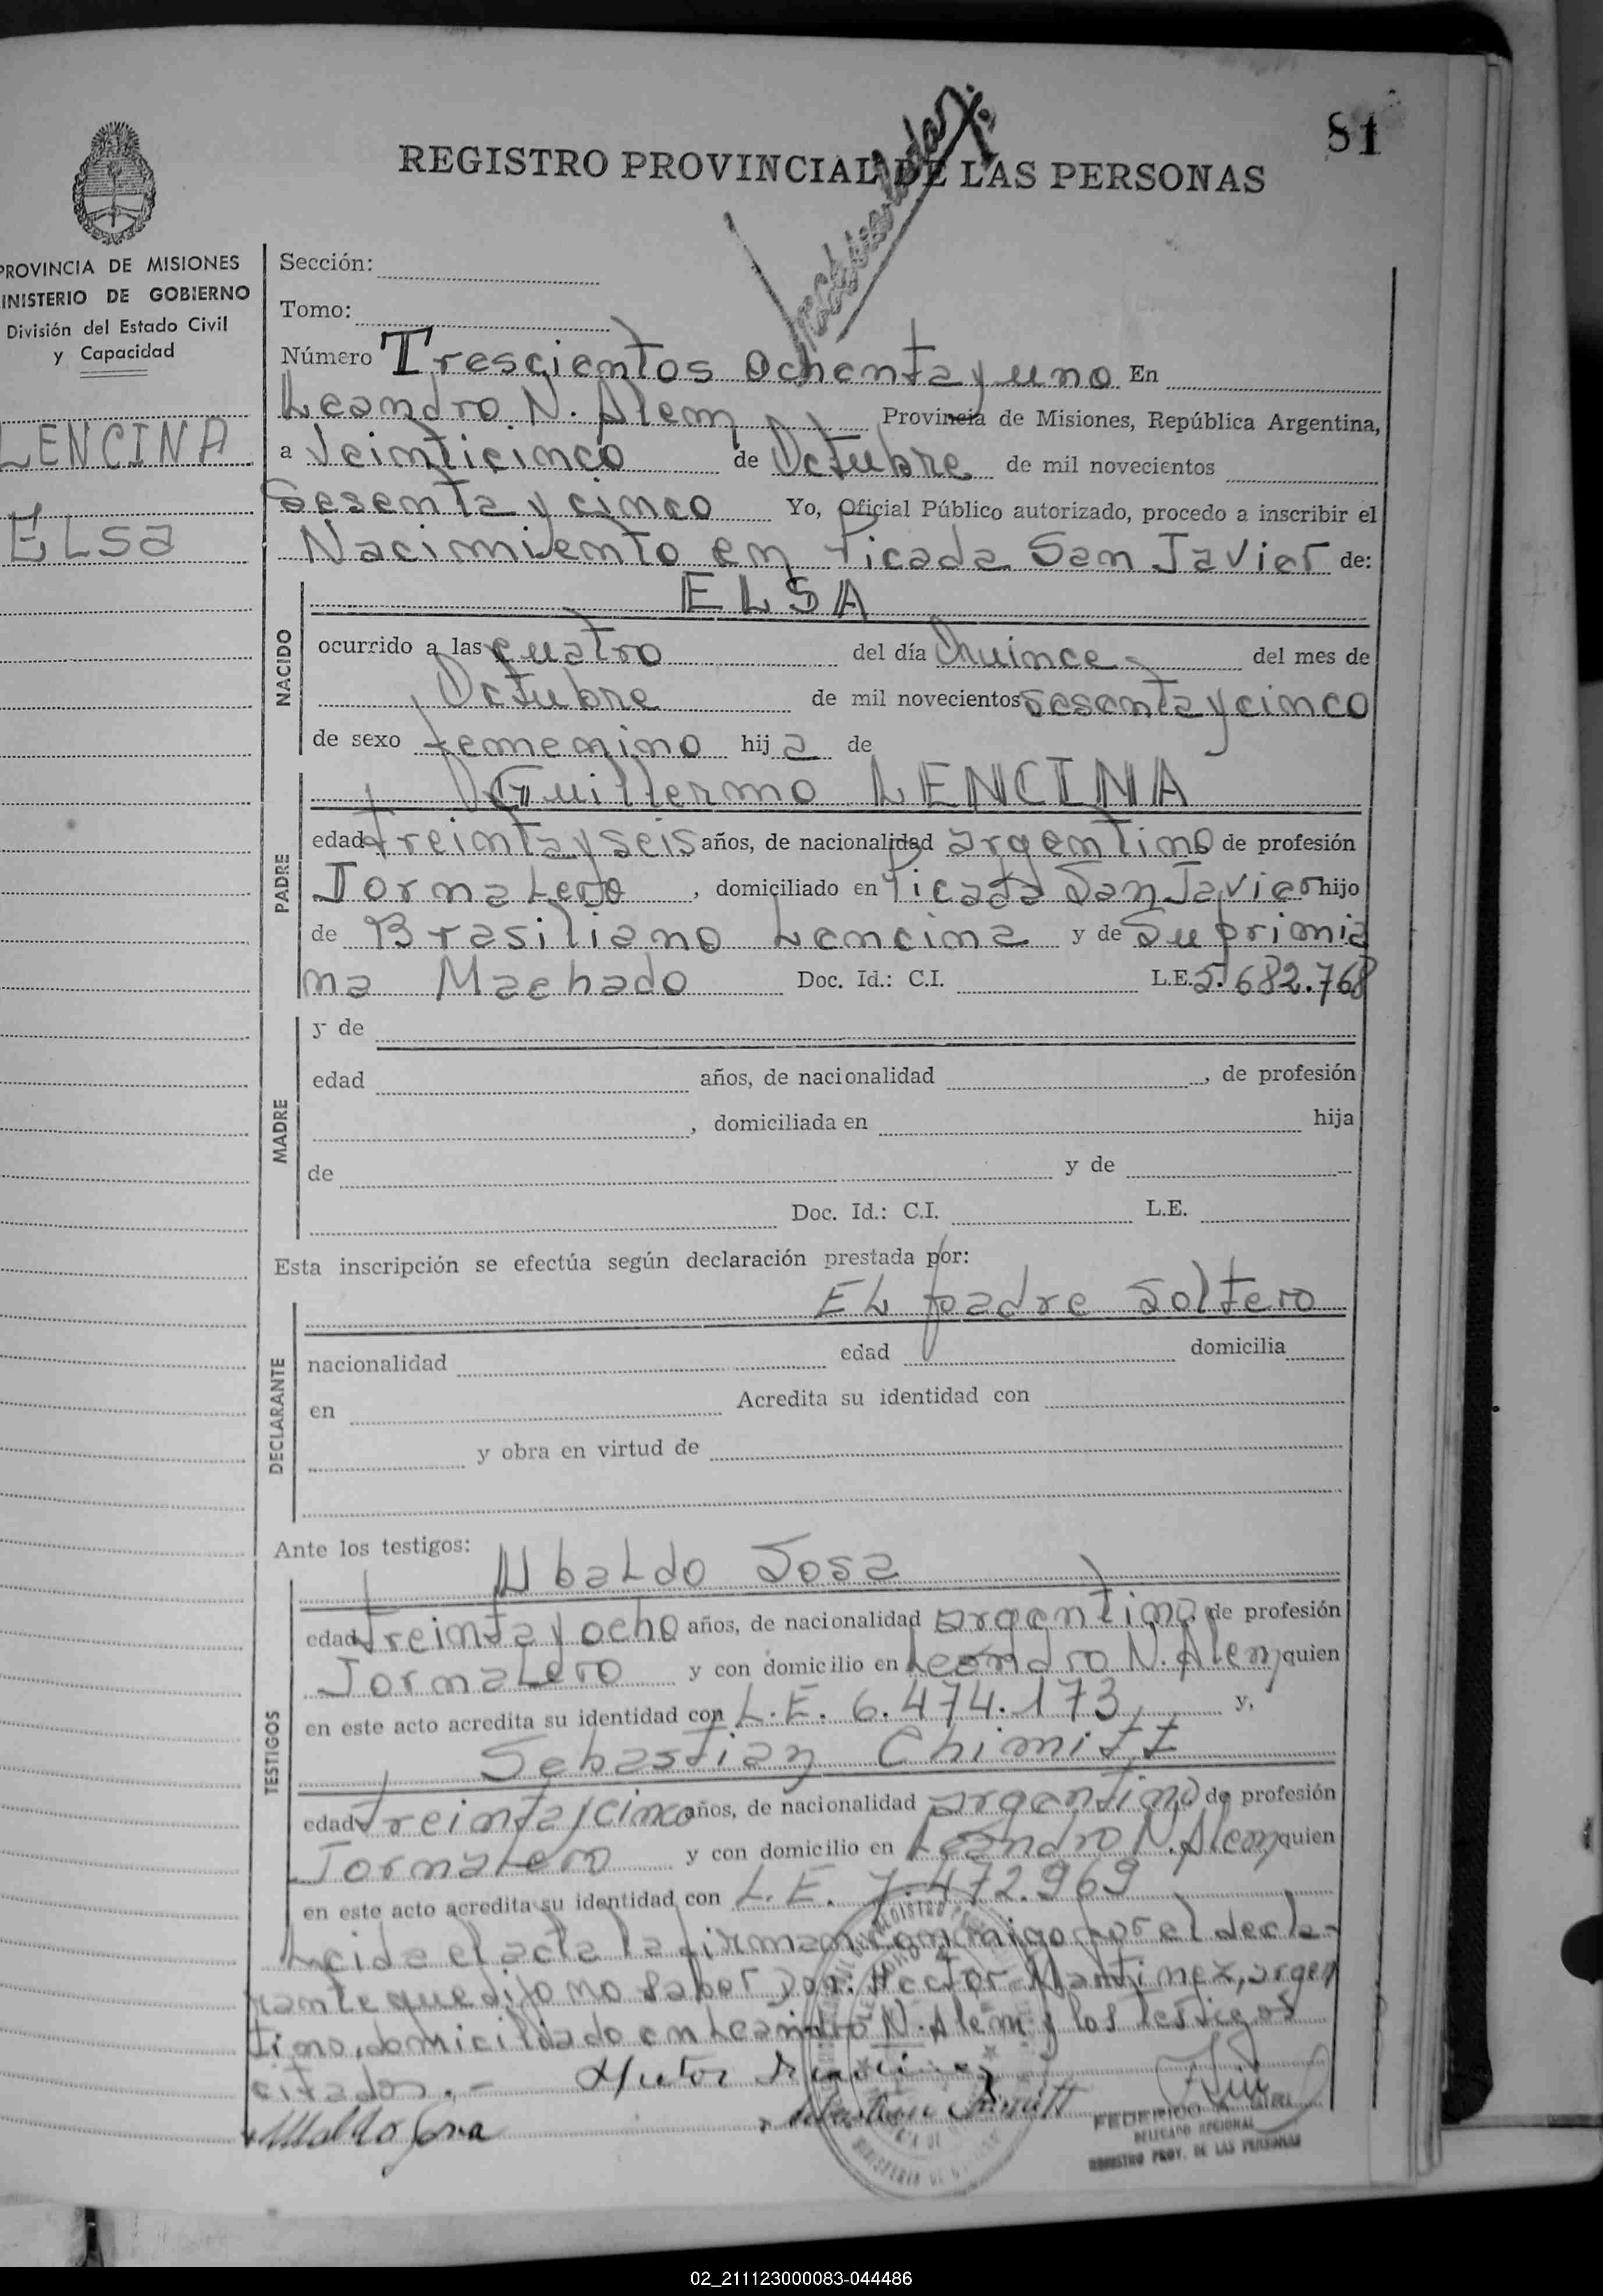 81
REGISTRO PROVINCIAL DE LAS PERSONAS
PROVINCIA DE MISIONES
MINISTERIO DE GOBIERNO
División del Estado Civil
y Capacidad
LENCINA
ELsa
Sección:
Tomo:
Número Trescientos Ochenta y uno En
Leandro N. Alem Provincia de Misiones, República Argentina,
a Veinticinco de Octubre de mil novecientos
Sesenta y cinco Yo, Oficial Público autorizado, procedo a inscribir el
Nacimiento en Picada San Javier de:
NACIDO
ELSA
ocurrido a las cuatro del día Quince del mes de
Octubre de mil novecientos sesenta y cinco
de sexo femenino hija de
PADRE
Guillermo LENCINA
edad treinta y seis años, de nacionalidad argentino de profesión
Jornalero, domiciliado en Picada San Javier hijo
de Brasiliano Lencina y de Suprimia
na Machado Doc. Id.: C.I. L.E. 5.682.768
MADRE
y de
edad años, de nacionalidad , de profesión
, domiciliada en hija
de y de
Doc. Id.: C.I. L.E.
Esta inscripción se efectúa según declaración prestada por:
DECLARANTE
EL padre Soltero
nacionalidad edad domicilia
en Acredita su identidad con
y obra en virtud de
Ante los testigos:
TESTIGOS
UbaLdo Sosa
edad treinta y ocho años, de nacionalidad argentino de profesión
Jornalero y con domicilio en Leandro N. Alem quien
en este acto acredita su identidad con L.E. 6.474.173 y,
Sebastian Chimitt
edad treinta y cinco años, de nacionalidad argentino de profesión
Jornalero y con domicilio en Leandro N. Alem quien
en este acto acredita su identidad con L.E. 7.472.969
Leida el acta la firman conmigo por el decla-
rante que dijo no saber Don: Hector Martinez, argen
tino, domiciliado en Leandro N. Alem y los testigos
citados.-
FEDERICO
DELEGADO REGIONAL
REGISTRO PROV. DE LAS PERSONAS
02_211123000083-044486